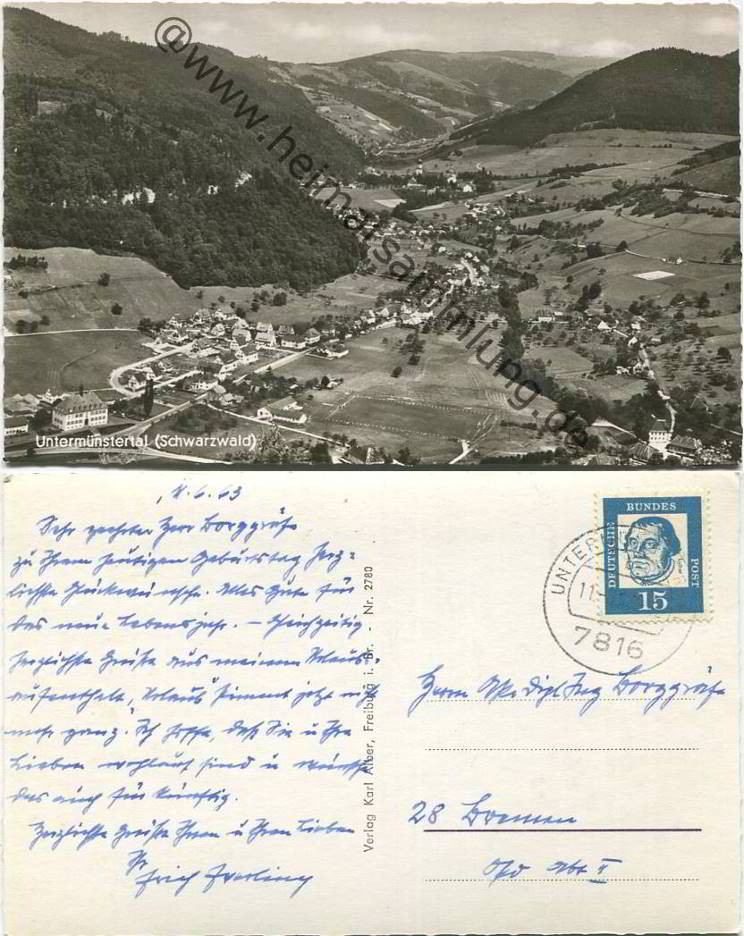 @www.heimatsammlung.de
Untermünstertal (Schwarzwald)
11.6.63
Sehr geehrter Herr Borggräfe
zu Ihrem heutigen Geburtstag herz-
lichste Glückwünsche. Alles Gute für
das neue Lebensjahr. – Gleichzeitig
herzlichste Grüße aus meinem Urlaubs-
aufenthalt, "Urlaub" stimmt jetzt nicht
mehr ganz. Ich hoffe, daß Sie u Ihre
Lieben wohlauf sind u wünsche
das auch für künftig.
Herzlichste Grüße Ihnen u Ihren Lieben
Ihr
Erich
Verlag Karl Alber, Freiburg i. Br. - Nr. 2780
DEUTSCHE
BUNDES
POST
15
UNTER
11.
7816
Herrn Dipl Ing Borggräfe
28 Bremen
Opd Abt II